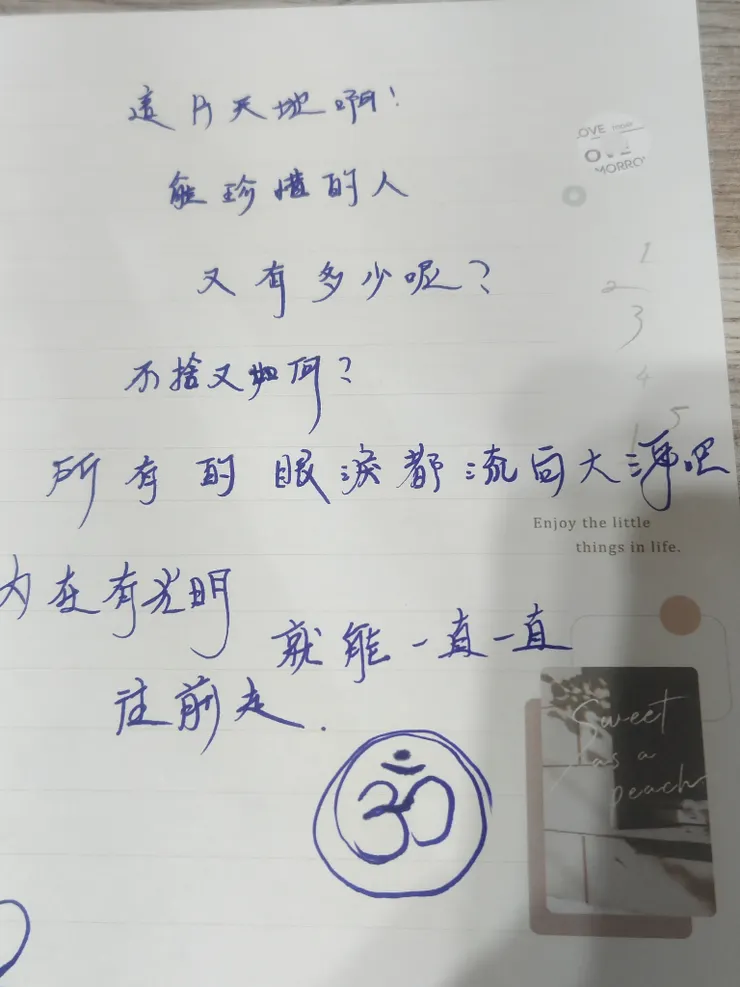 這片天地啊！
能珍惜的人
又有多少呢？
不捨又如何？
所有的眼淚都流向大海吧
內在有光明
就能一直一直
往前走.
ॐ
OVE
MORRO
1
2
3
4
5
Enjoy the little
things in life.
Sweet
as a
peach